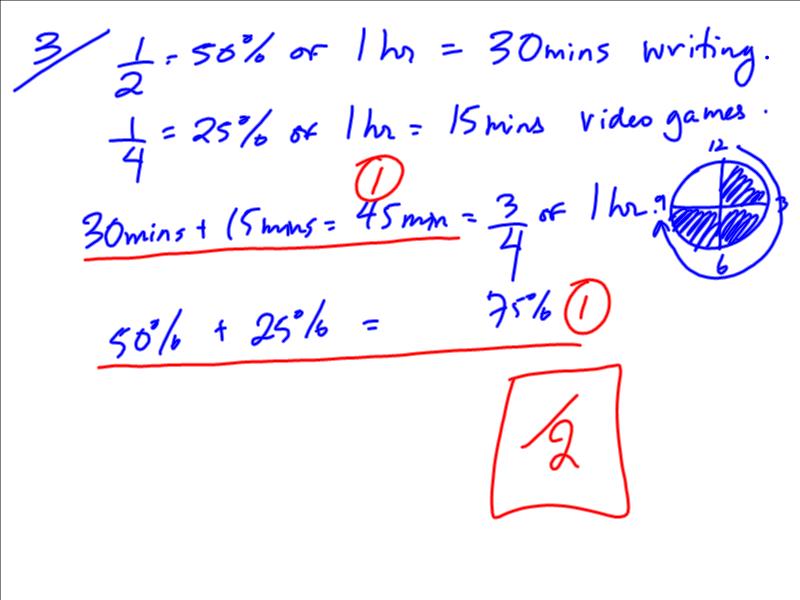 3/ 1/2 = 50% of 1 hr = 30mins writing.
1/4 = 25% of 1 hr = 15mins video games.
①
30mins + 15mins = 45min = 3/4 of 1 hr.
12
9 3
6
50% + 25% = 75% ①
/2